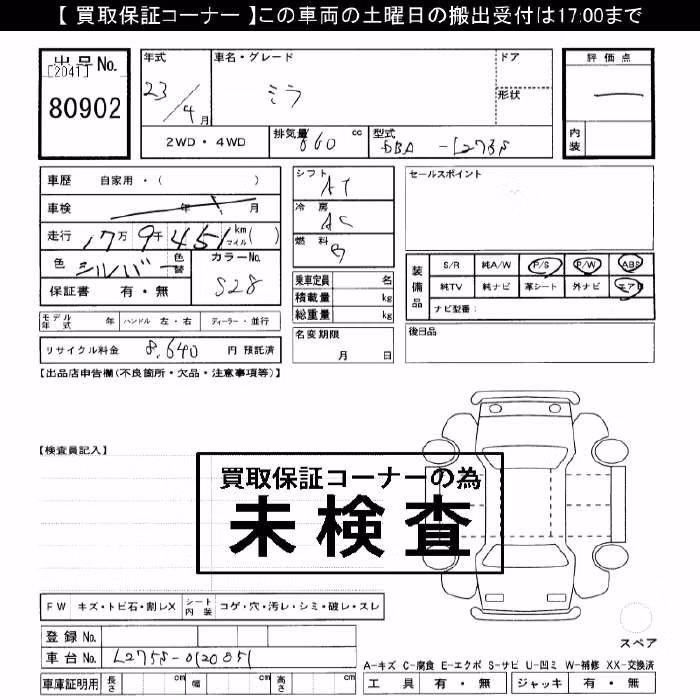 【 買取保証コーナー 】この車両の土曜日の搬出受付は17:00まで
出品No.
[2041]
80902
年式
23/4月
車名・グレード
ミラ
ドア
形状
評価点
内装
2WD・4WD
排気量 660 cc
型式 DBA-L275S
車歴 自家用・( )
車検 年 月
走行 17万9千451km マイル( )
色 シルバー 色替
カラーNo. S28
保証書 有・無
シフト AT
冷房 AC
燃料
乗車定員 名
積載量 kg
総重量 kg
セールスポイント
装備品
S/R 純A/W P/S P/W ABS
純TV 純ナビ 革シート 外ナビ エアB
ナビ型番:
モデル年式 年 ハンドル 左・右 ディーラー・並行
リサイクル料金 8,640 円 預託済
名変期限 月 日
後日品
【出品店申告欄(不良箇所・欠品・注意事項等)】
【検査員記入】
買取保証コーナーの為
未検査
FW キズ・トビ石・割レX シート内装 コゲ・穴・汚レ・シミ・破レ・スレ
登録No.
車台No. L275S-0120851
車庫証明用 長さ cm 幅 cm 高さ cm
スペア
A-キズ C-腐食 E-エクボ S-サビ U-凹ミ W-補修 XX-交換済
工具 有・無 ジャッキ 有・無